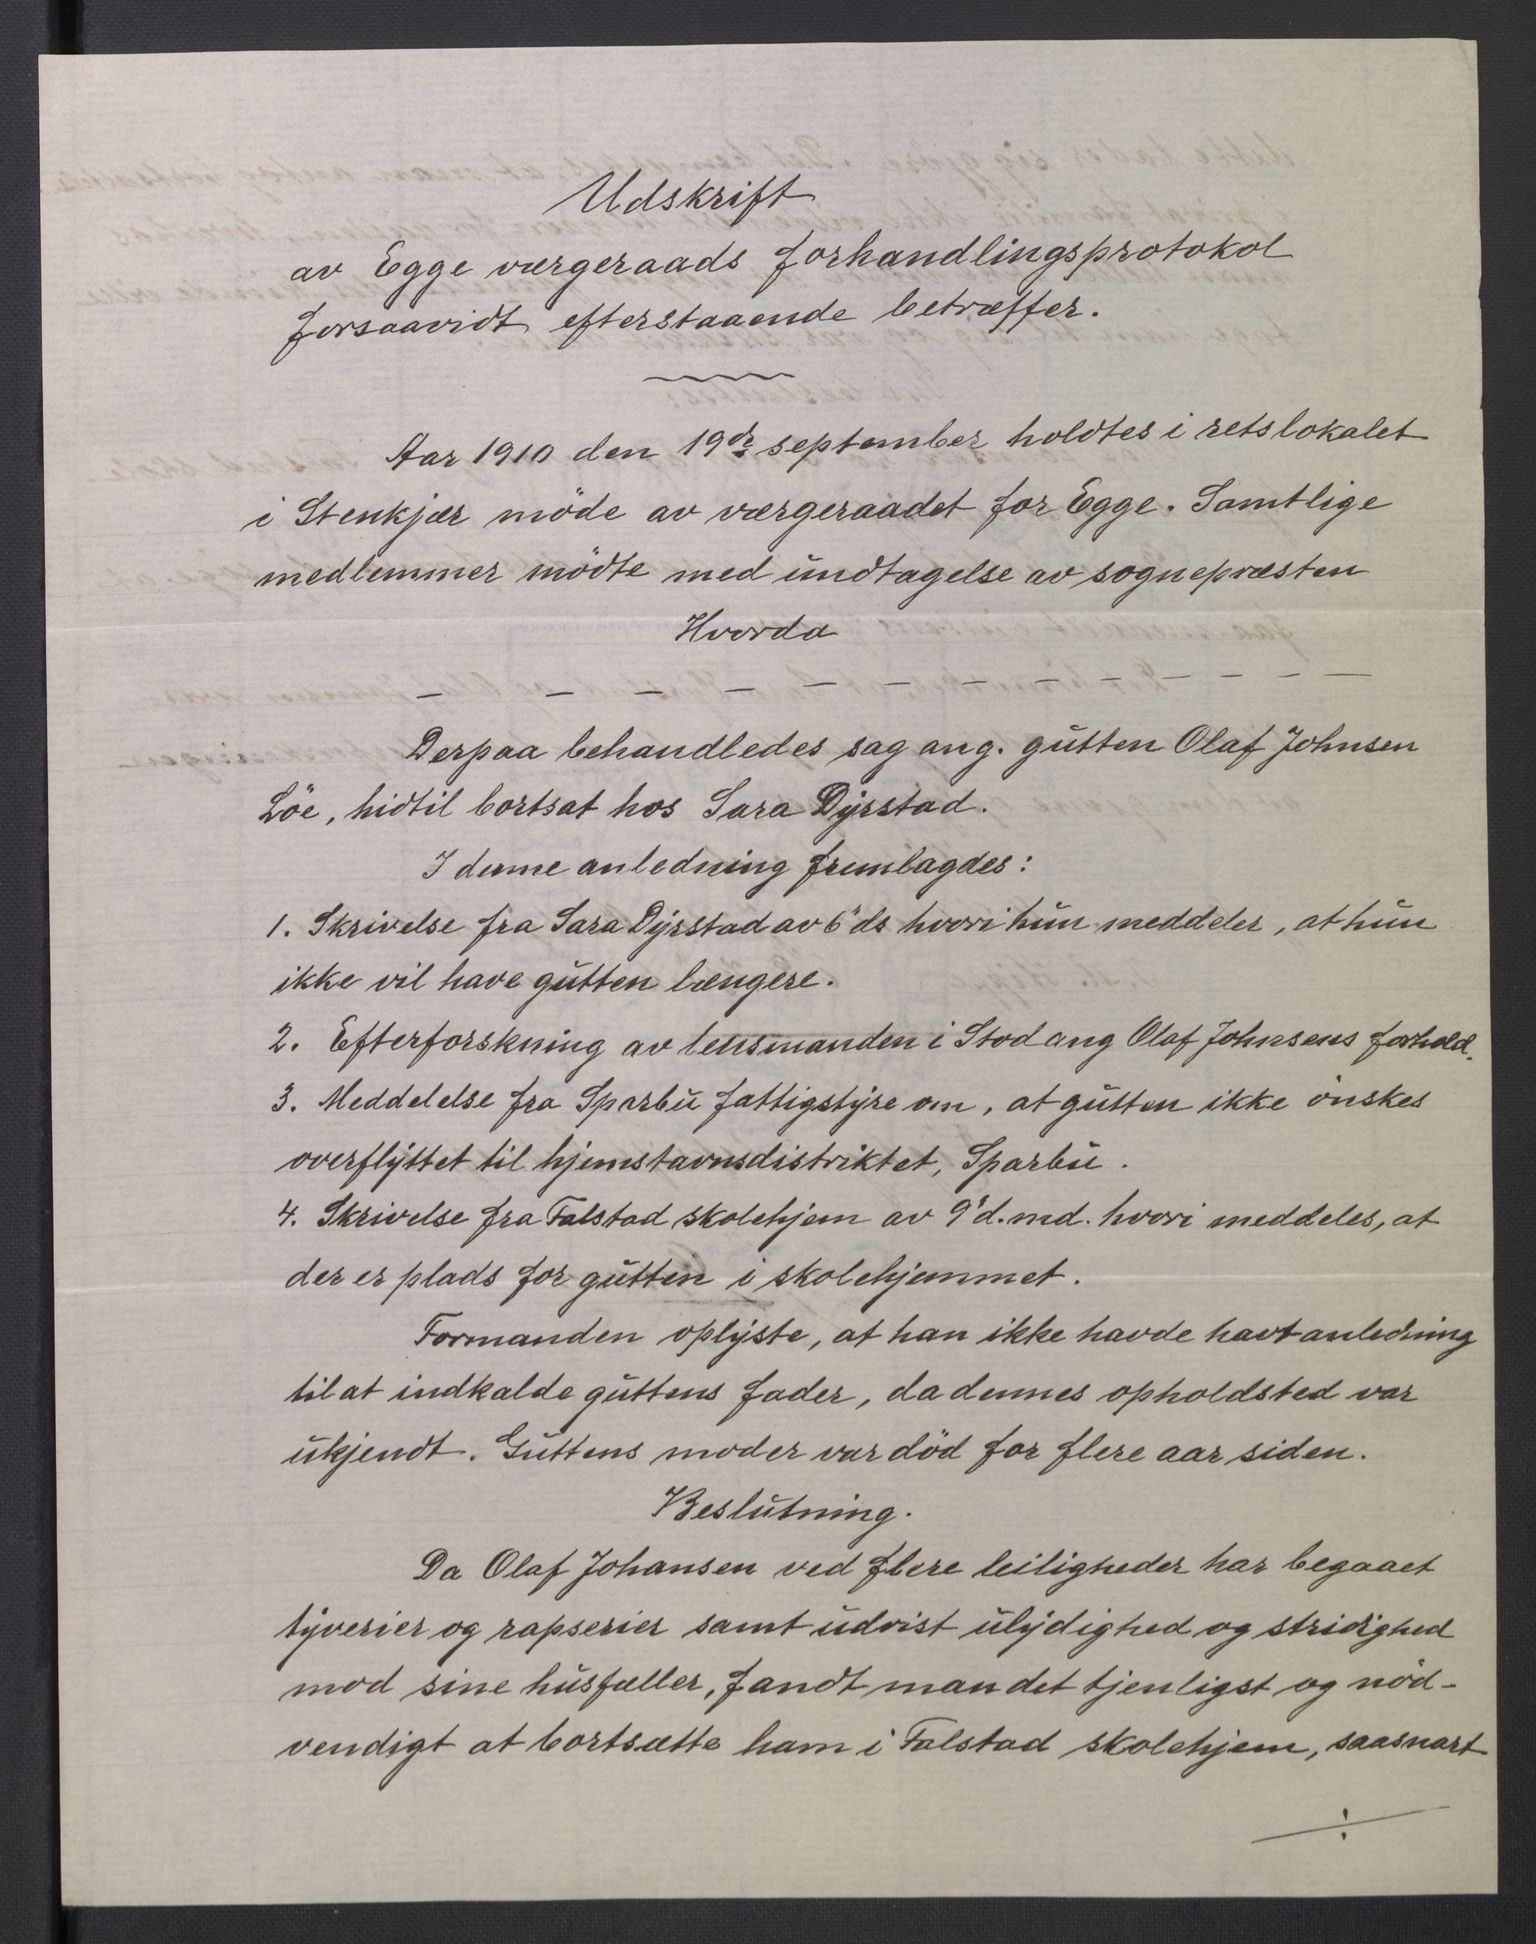 Udskrift
av Egge værgeraads forhandlingsprotokol
forsaavidt efterstaaende betræffer.
Aar 1910 den 19de september holdtes i retslokalet
i Stenkjær möde av værgeraadet for Egge. Samtlige
medlemmer mödte med undtagelse av sognepræsten
Hvorda
— — — — — — — — — — — — —
Derpaa behandledes sag ang. gutten Olaf Johnsen
Löe, hidtil bortsat hos Sara Dyrstad.
I denne anledning fremlagdes:
1. Skrivelse fra Sara Dyrstad av 6" ds hvori hun meddeler, at hun
ikke vil have gutten længere.
2. Efterforskning av lensmanden i Stod ang Olaf Johnsens forhold.
3. Meddelelse fra Sparbu fattigstyre om, at gutten ikke önskes
overflyttet til hjemstavnsdistriktet, Sparbu.
4. Skrivelse fra Falstad skolehjem av 9' d. md. hvori meddeles, at
der er plads for gutten i skolehjemmet.
Formanden oplyste, at han ikke havde havt anledning
til at indkalde guttens fader, da dennes opholdsted var
ukjendt. Guttens moder var död for flere aar siden.
Beslutning.
Da Olaf Johansen ved flere leiligheder har begaaet
tyverier og rapserier samt udvist ulydighed og stridighed
mod sine husfæller, fandt man det tjenligst og nöd-
vendigt at bortsætte ham i Falstad skolehjem, saasnart
÷